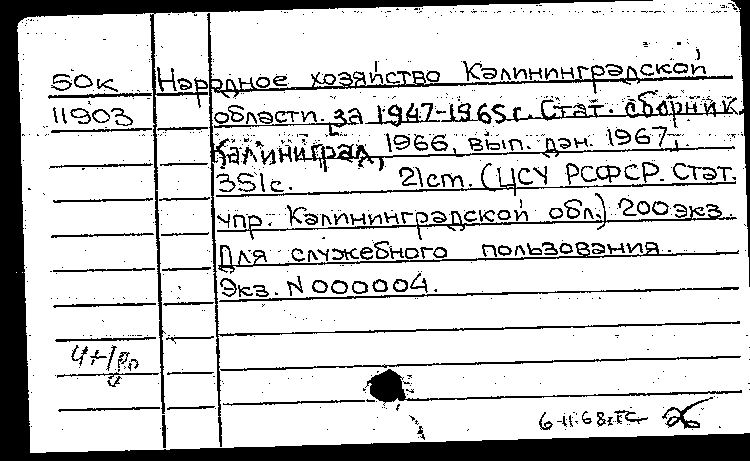 50к Народное хозяйство Калининградской
11903 области за 1947-1965г. Стат. сборник.
Калининград, 1966, вып. дан. 1967,
351с. 21ст. (ЦСУ РСФСР. Стат.
упр. Калининградской обл.) 200экз.
Для служебного пользования.
Экз. N000004.
4+1